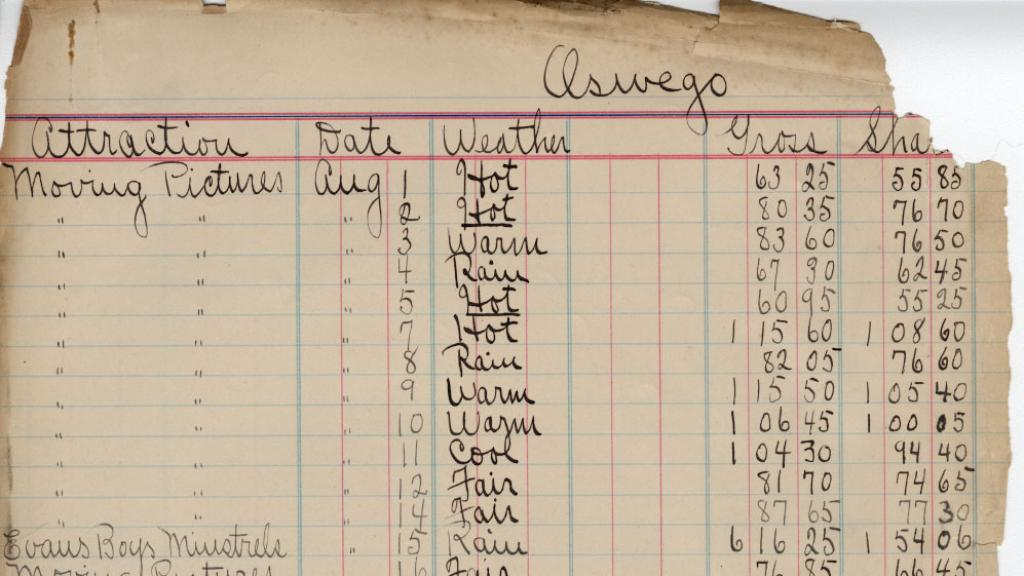 Oswego
Attraction Date Weather Gross Sha
Moving Pictures Aug 1 Hot 63 25 55 85
" " " 2 Hot 80 35 76 70
" " " 3 Warm 83 60 76 50
" " " 4 Rain 67 30 62 45
" " " 5 Hot 60 95 55 25
" " " 7 Hot 1 15 60 1 08 60
" " " 8 Rain 82 05 76 60
" " " 9 Warm 1 15 50 1 05 40
" " " 10 Warm 1 06 45 1 00 05
" " " 11 Cool 1 04 30 94 40
" " " 12 Fair 81 70 74 65
" " " 14 Fair 87 65 77 30
Evans Boys Minstrels " 15 Rain 6 16 25 1 54 06
Moving Pictures " 16 Fair 76 85 66 45